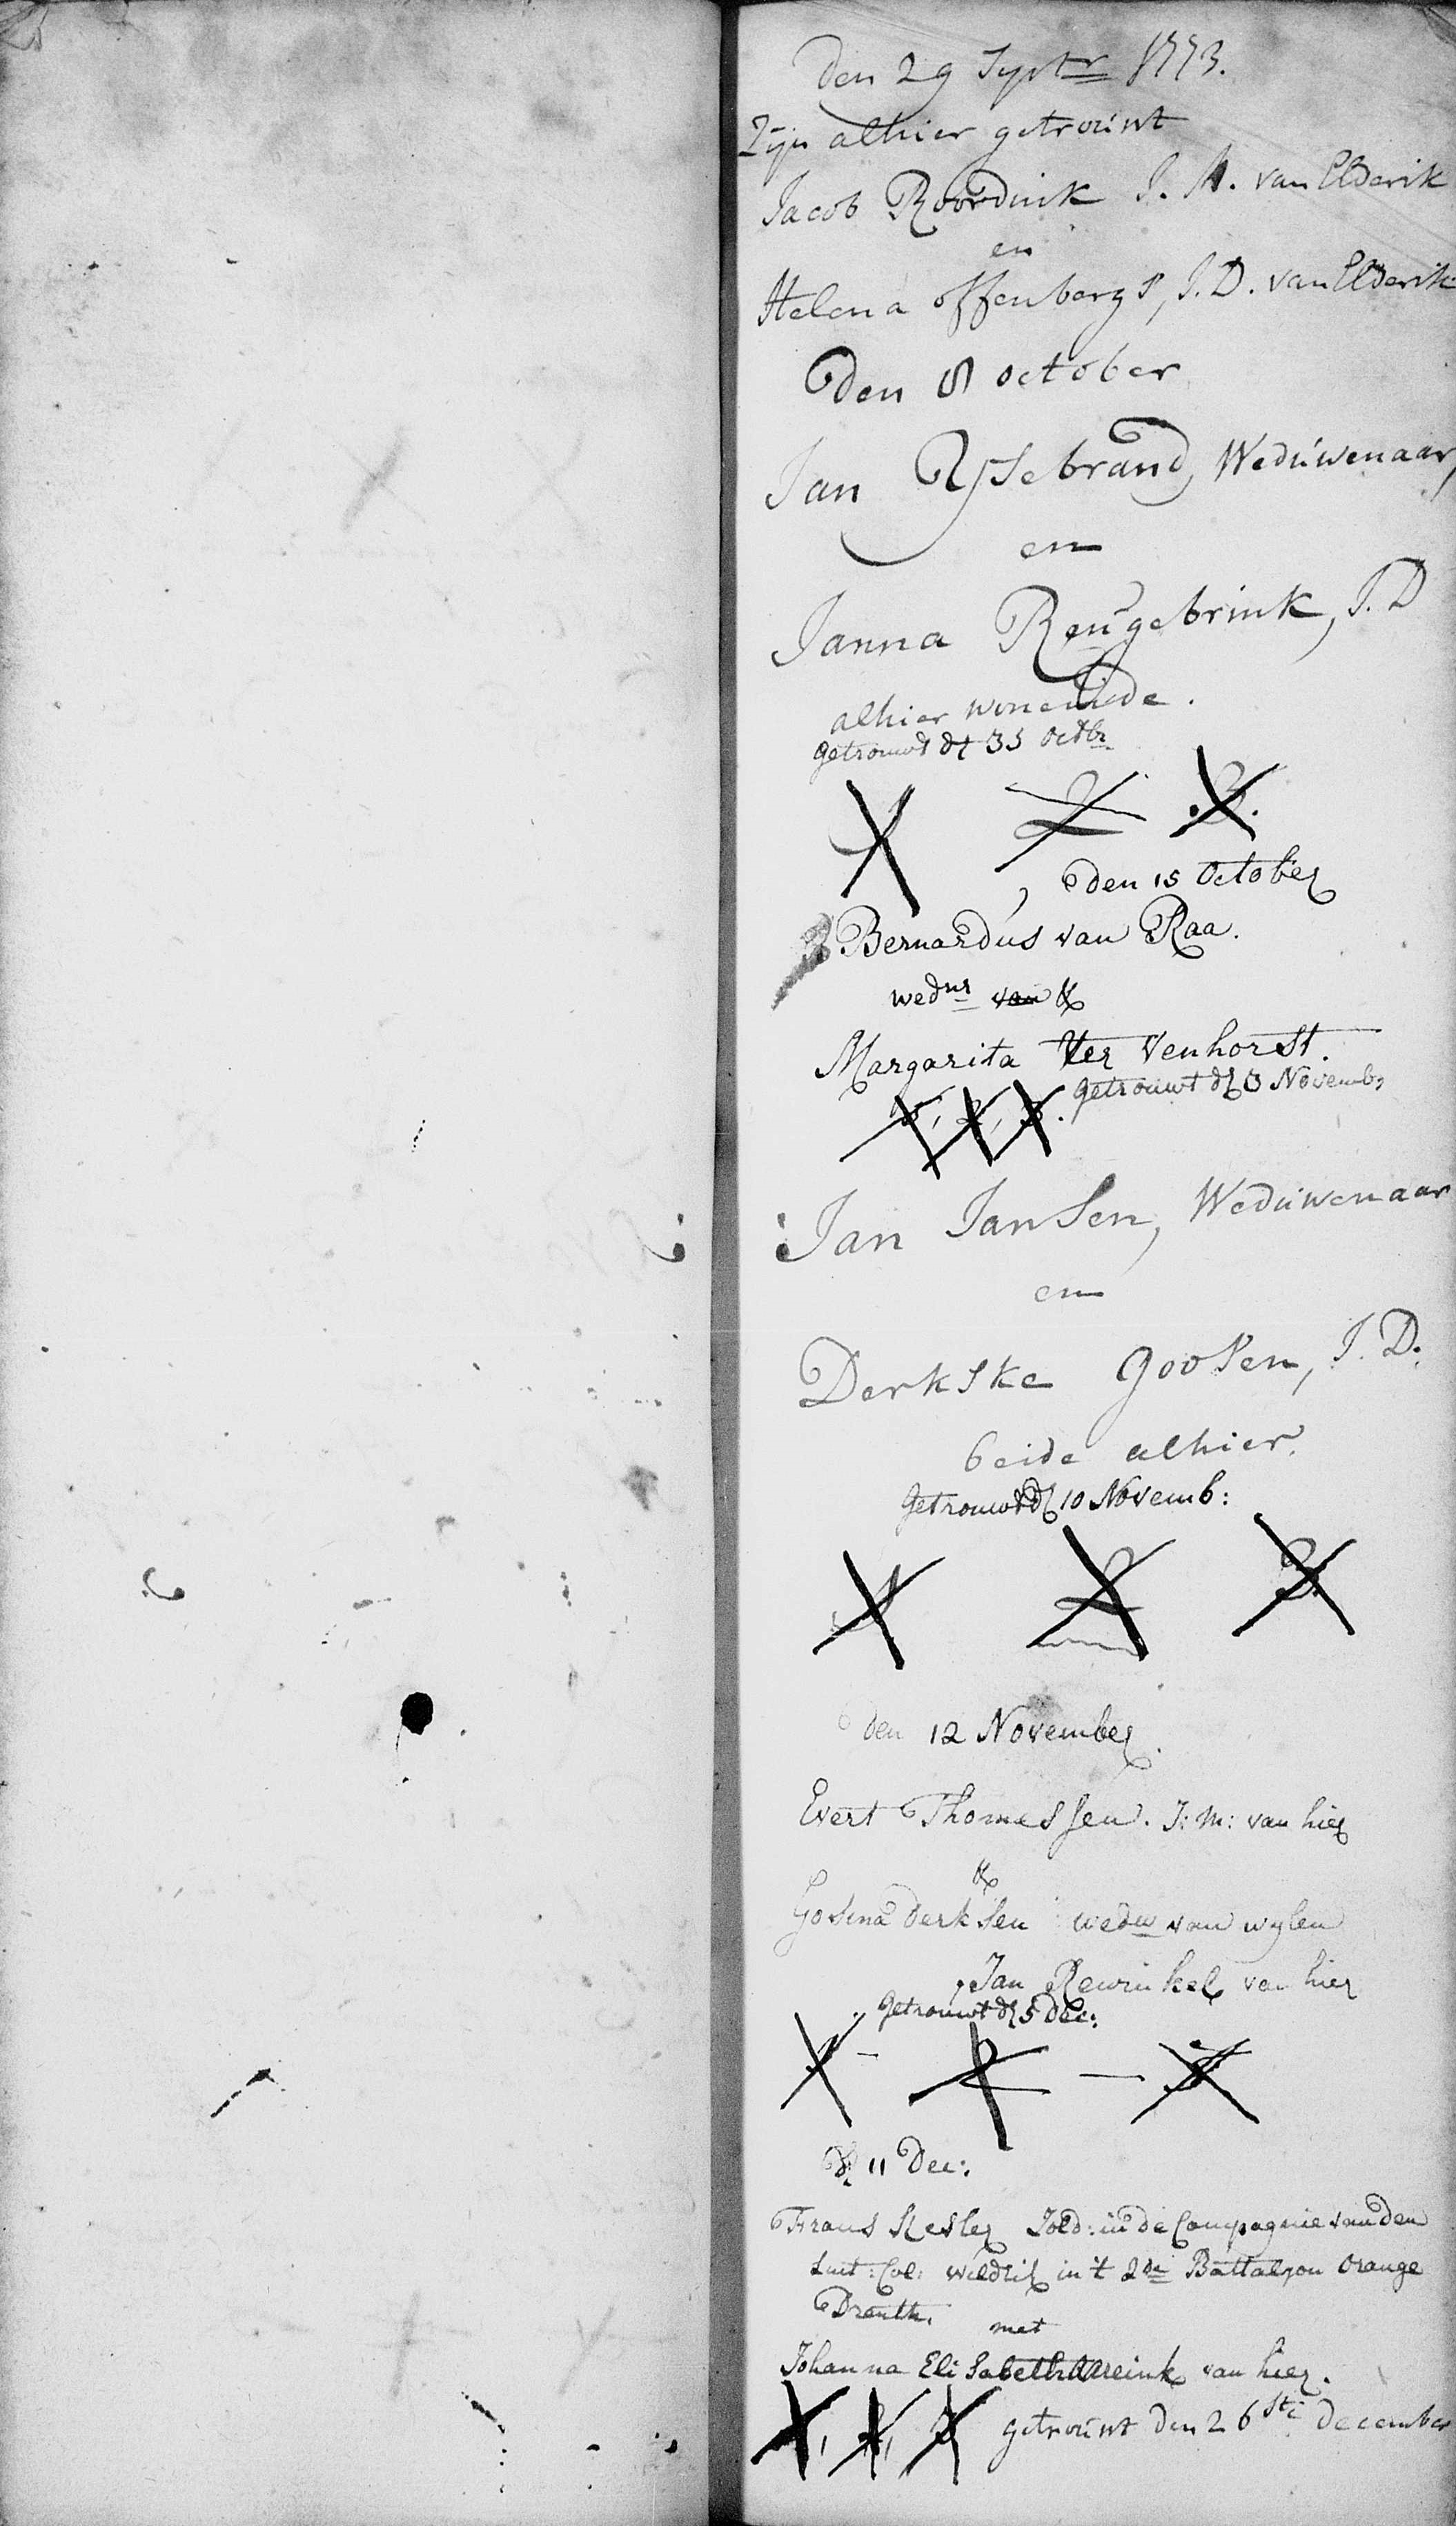 den 29 Septr 1773.
Zijn alhier getrouwt
Jacob Roordink J. M. van Elderik
en
Helena offenbergs, J. D. van Elderik
den 8 october
Jan IJsebrand, Weduwenaar,
en
Janna Reugebrink, J. D
alhier wonende.
getrouwt dr 31 Octbr
1 2 3.
den 15 October
Bernardus van Raa.
wedur van &
Margarita Ter Venhorst.
getrouwt dr 3 Novembr
1, 2, 3.
Jan Jansen, Weduwenaar
en
Derkske Goosen, J. D.
beide alhier.
Getrouwt dr 10 Novemb:
1 2 3.
den 12 November.
Evert Thomessen. J: M: van hier
&
Gosena derksen wedw van wylen
Jan Rewinkel van hier
Getrouwt dr 5 Dec:
1 - 2 - 3
dr 11 Dec:
Frans Kesler Sold: in de Compagnie van den
Luit: Col: in 't 2de Battalyon Orange
Drenth. met
Johanna Elisabeth van hier.
1, 2, 3 getrouwt den 26ste december